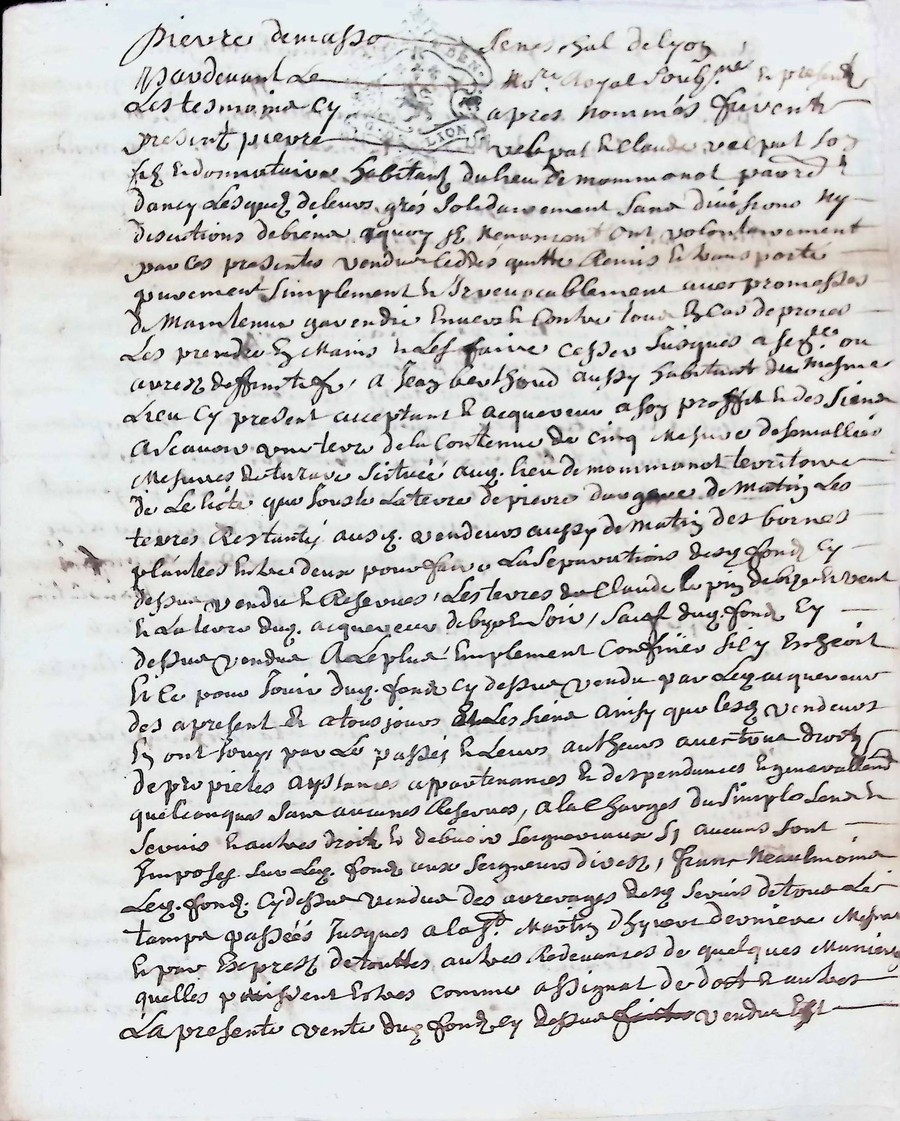 pierre demasso Seneschal de lyon
Pardevant Le No.re Royal Soubs.ne Et presents
Les tesmoins cy apres nommés furent
presents pierre velapat et Claude velpat son
fils Et donnataire habitants du lieu de mommanot parr.
dancy Lesquels de leurs grés Solidairement Sans divisions Ny
discutions de biens a quoy Ils Renoncent ont volontairement
par ces presentes vendu Ceddés quitté Remis Et transporté
purement Simplement et Irrevocablement avec promesses
de Maintenir garendir Envers Et Contre tous En Cas de proces
Les prendre En Mains Et Les faire cesser Jusques a sen.ce ou
arrest deffinitif, a Jean berthoud aussy habitant du Mesme
Lieu Cy present acceptant Et acquereur a Son proffit Et des Siens
ascavoir une terre de la Contenue de Cinq Mesure de Semailles
Mesures de tarare Scituée aud. lieu de mommanot territoire
de Le Jouste La terre de pierre de Matin Les
terres Restantes ausd. vendeurs aussy de Matin des bornes
plantées Entre deux pour faire La Separations desd. fonds Cy
dessus vendu Et Reserves, Les terres de Claude de bize Et vent
Et La terre dud. acquereur de bize Et Soir, Sauf dud. fonds Cy
dessus vendus A Le plus Emplement Confiner Sil y Escheoit
Et Ce pour Jouir dud. fonds Cy dessus vendu par Led. acquereur
des apresent Et a tousjours Et Les Siens ainsy que lesd. vendeurs
En ont Jouy par Le passés Et Leurs autheurs avec tous droits
de propietes aysances appartenances Et despendances Et generallement
quelconques Sans aucunes Reserves, a la Charges du Simple Sens et
Servis Et autres droits Et debvoir Seigneuriaux Sy aucuns Sont
Imposés Sur Led. fonds aux Seigneurs divest, franc Neaulmoins
Led. fonds Cy dessus vendus des arrerages desd. Servis de tous Le
temps passées Jusques a la St. Martin dhyvert derniere
Et par Expres de touttes autres Redevances de quelques Manieres
quelles puissent Estres comme assignat de dost Et autres
La presente vente dud. fonds Cy dessus vendus Est